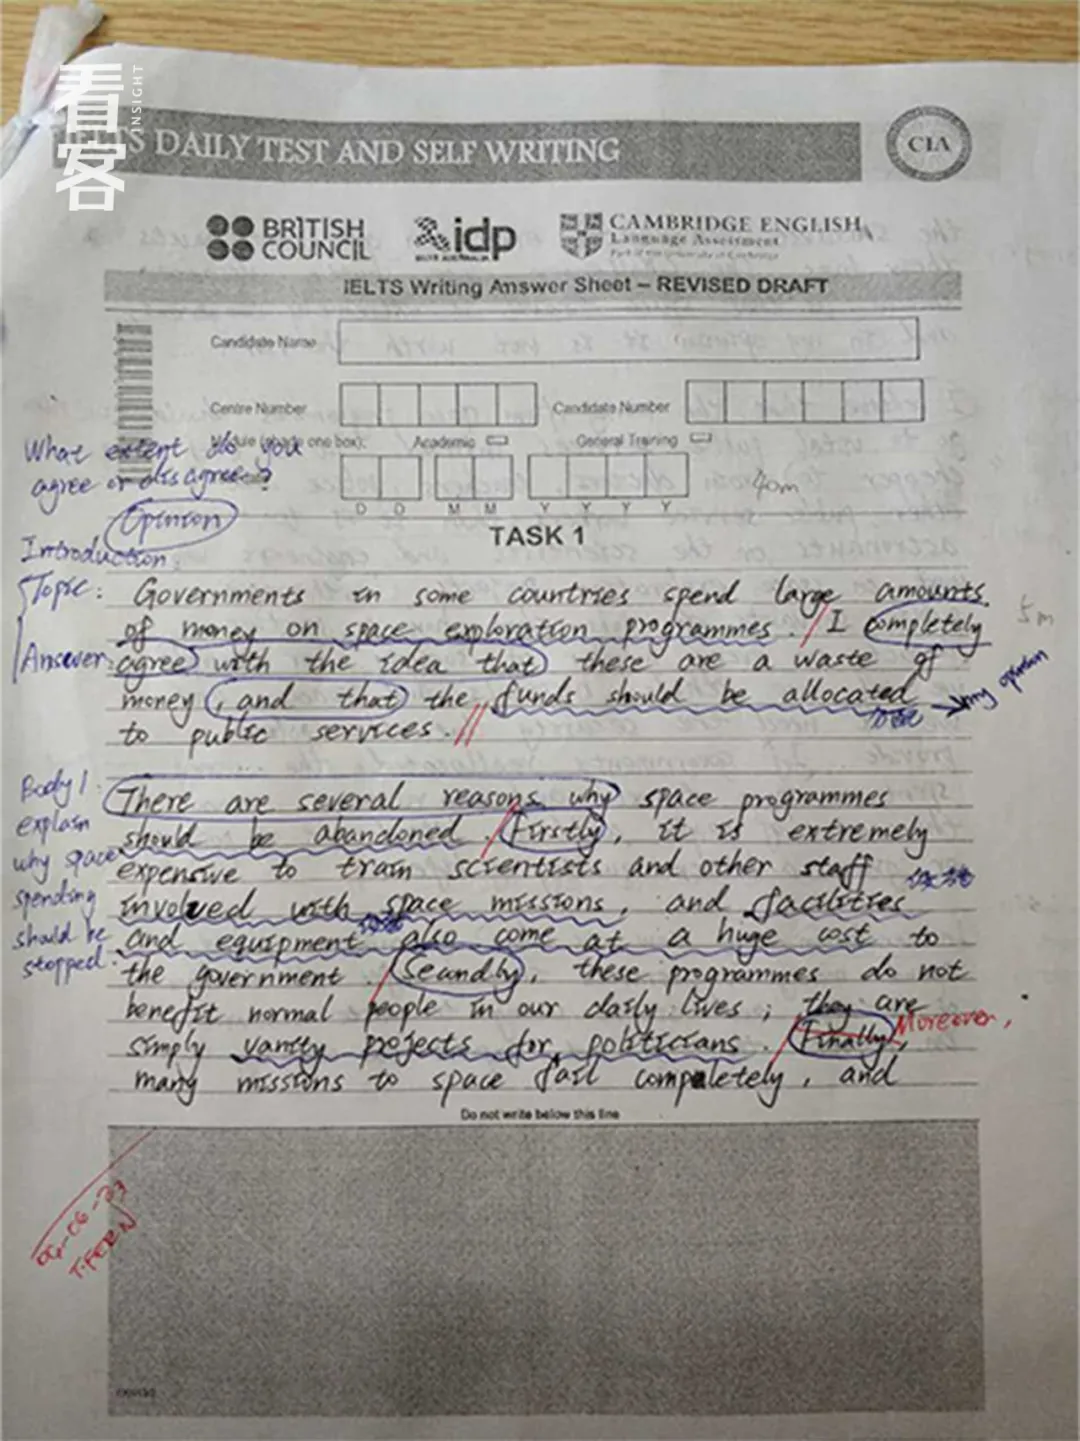 看客
INSIGHT
IELTS DAILY TEST AND SELF WRITING
CIA
BRITISH COUNCIL
idp
IELTS AUSTRALIA
CAMBRIDGE ENGLISH
Language Assessment
Part of the University of Cambridge
IELTS Writing Answer Sheet – REVISED DRAFT
Candidate Name
Centre Number
Candidate Number
Module (shade one box):
Academic
General Training
What extent do you
agree or disagree?
40m
D D M M Y Y Y Y
Opinion
TASK 1
Introduction:
Topic: Governments in some countries spend large amounts
of money on space exploration programmes. I completely
5m
Answer: agree with the idea that these are a waste of
money, and that the funds should be allocated
my opinion
to public services.
Body 1:
explain
why space
spending
should be
stopped.
There are several reasons why space programmes
should be abandoned. Firstly, it is extremely
expensive to train scientists and other staff
involved with space missions, and facilities
and equipment also come at a huge cost to
the government. Secondly, these programmes do not
benefit normal people in our daily lives; they are
simply vanity projects for politicians. Finally,
Moreover,
many missions to space fail completely, and
Do not write below this line
T.FERN